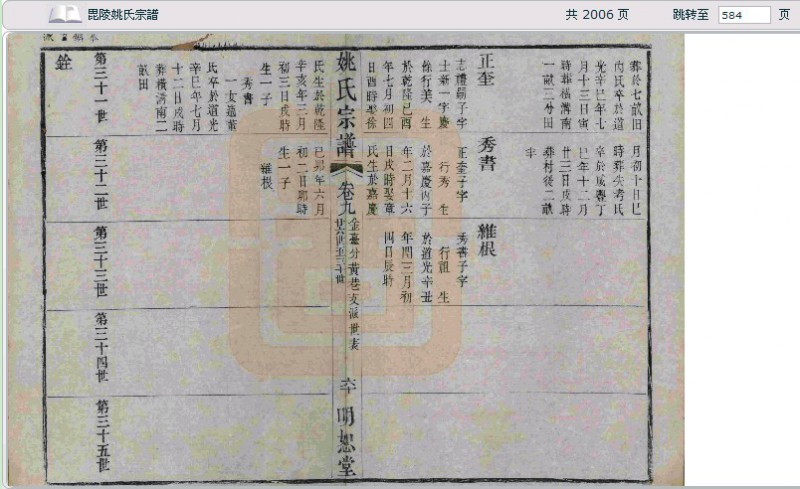 毘陵姚氏宗譜
共 2006 页
跳转至 584 页
葬於七畝田
内氏卒於道
光辛巳年七
月十三日寅
時葬橫溝南
一畝三分田
正奎
志禮嗣子字
士新一字慶
餘行美 生
於乾隆己酉
年七月初四
日酉時娶徐
氏生於乾隆
辛亥年三月
初三日戌時
生一子
秀書
一女適董
氏卒於道光
辛巳年七月
十二日戌時
葬橫溝南二
畝田
月初十日巳
時葬尖考氏
卒於咸豐丁
巳年十二月
廿三日戌時
葬村後二畝
半
秀書
正奎子字
行秀 生
於嘉慶丙子
年二月十六
日戌時娶童
氏生於嘉慶
己卯年六月
初二日卯時
生一子
雛根
雛根
秀書子字
行祖 生
於道光辛丑
年閏三月初
四日辰時
姚氏宗譜
卷九
金臺分黃巷支派世表
六
明恕堂
第三十一世
第三十二世
第三十三世
第三十四世
第三十五世
銓